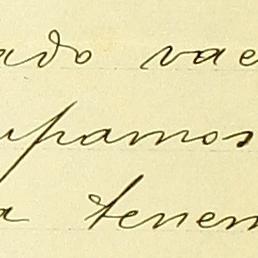 ado vae
upamos
a tenem